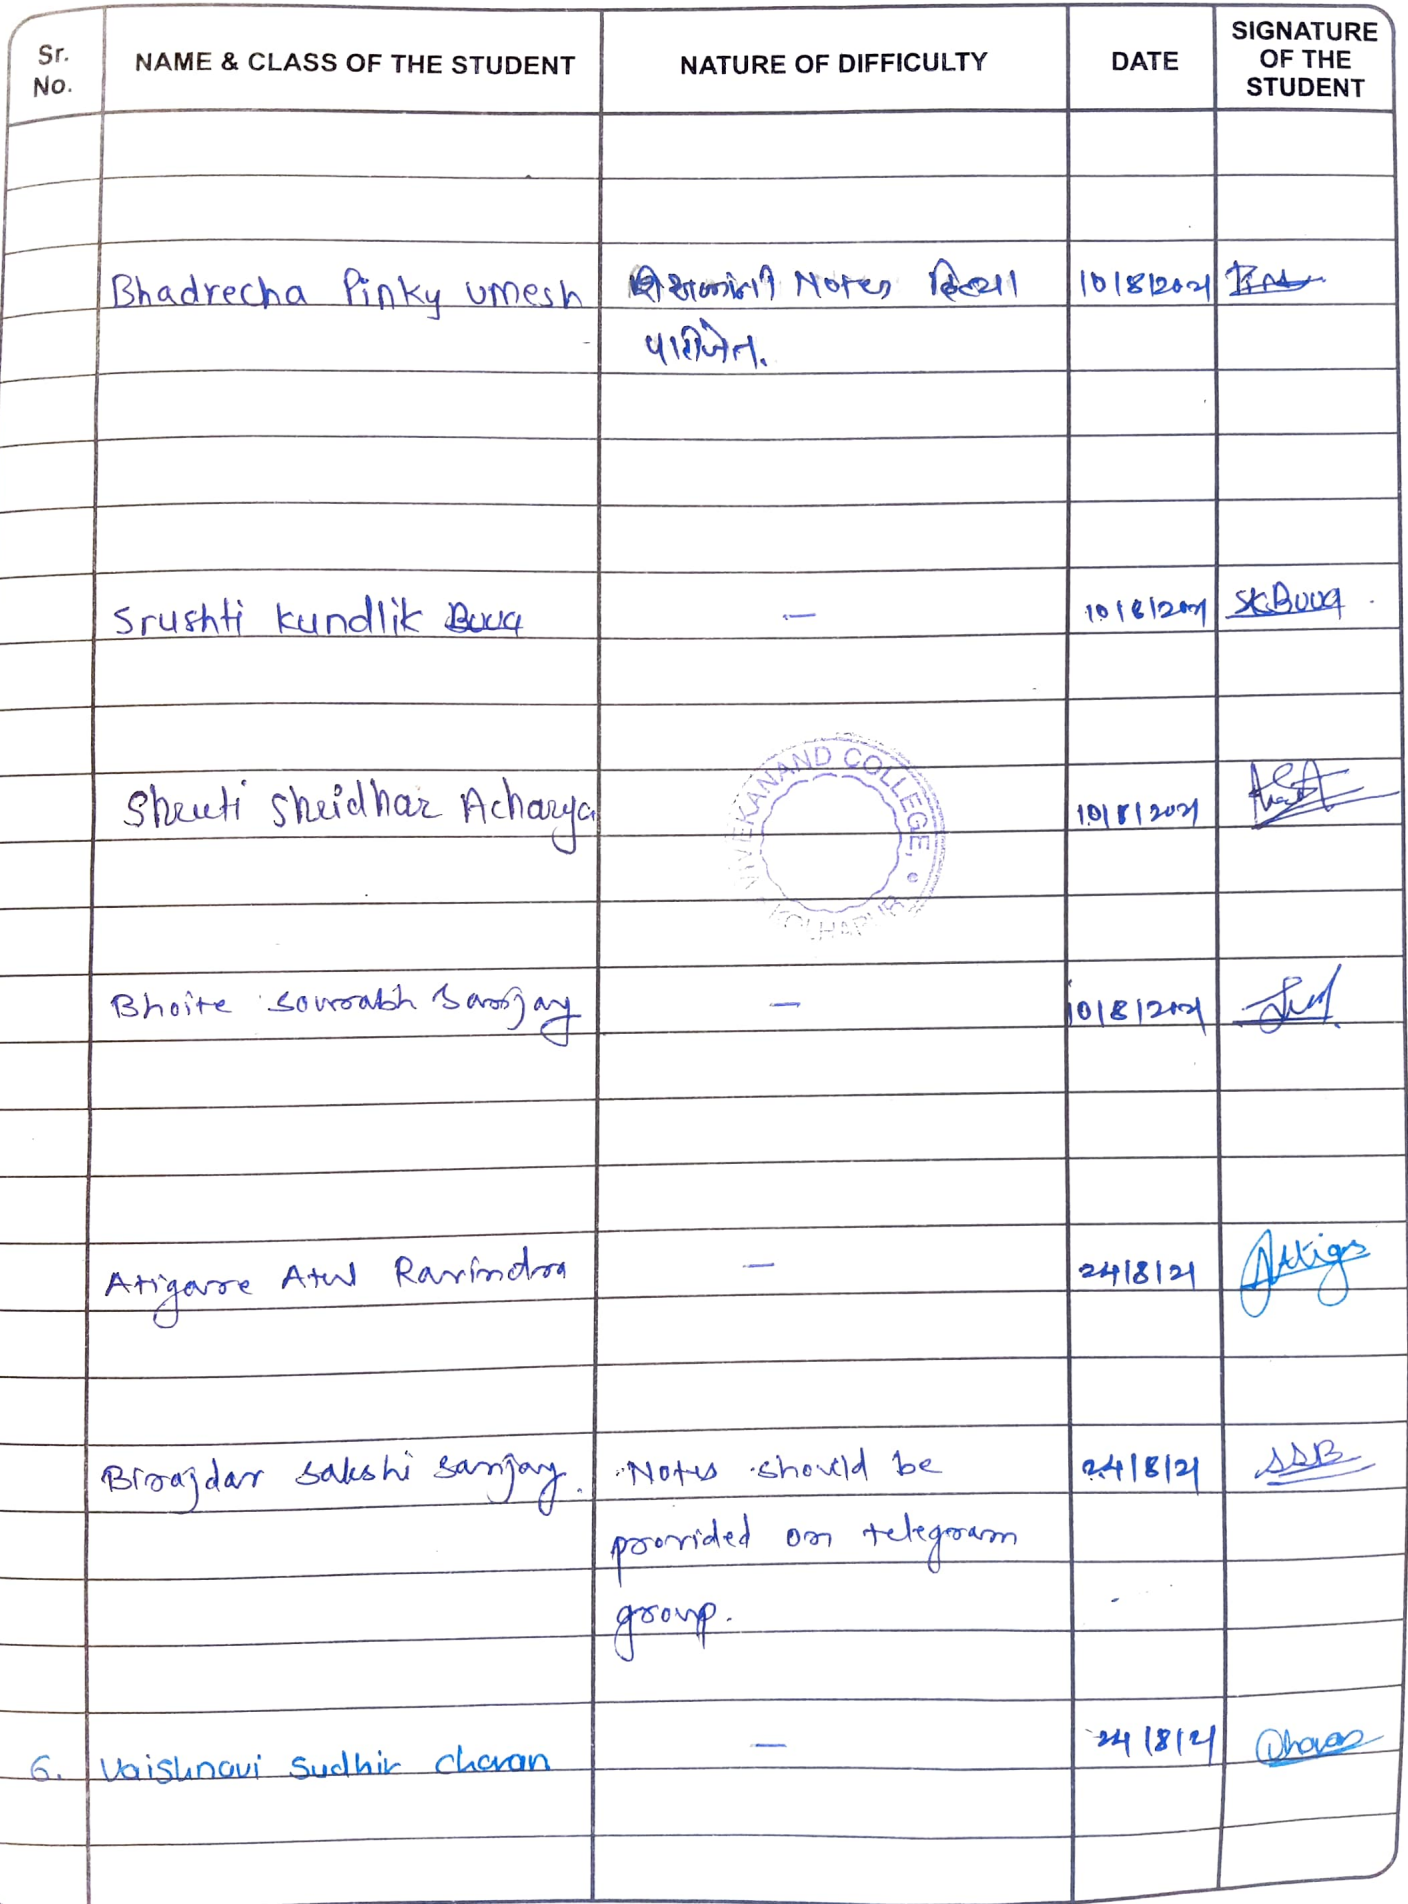 Sr. No.
NAME & CLASS OF THE STUDENT
NATURE OF DIFFICULTY
DATE
SIGNATURE OF THE STUDENT
Bhadrecha Pinky Umesh शिक्षकांनी Notes दिल्या 10/8/2021
पाहिजेत.
Srushti Kundlik Buva — 10/8/2021 SKBuva
Shruti Shridhar Acharya 10/8/2021
VIVEKANAND COLLEGE,
KOLHAPUR
Bhoite Sourabh Sanjay — 10/8/2021
Atigare Atul Ravindra — 24/8/21
Birajdar Sakshi Sanjay. Notes should be 24/8/21 SSB
provided on telegram
group.
6. Vaishnavi Sudhir Chavan — 24/8/21